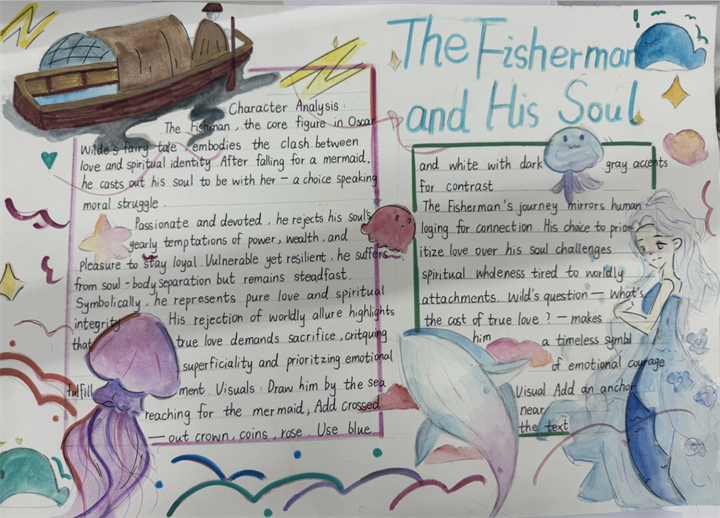 The Fisherman
and His Soul
Character Analysis :
The Fishman , the core figure in Oscar
Wilde's fairy tale embodies the clash between
love and spiritual identity. After falling for a mermaid,
he casts out his soul to be with her — a choice speaking
moral struggle .
Passionate and devoted . he rejects his soul's
yearly temptations of power, wealth . and
pleasure to stay loyal. Vulnerable yet resilient . he suffers
from soul - body separation but remains steadfast.
Symbolically . he represents pure love and spiritual
integrity His rejection of worldly allure highlights
that true love demands sacrifice , critquing
superficiality and prioritzing emotional
fulfill ment . Visuals : Draw him by the sea
reaching for the mermaid, Add crossed
— out crown , coins , rose . Use blue
and white with dark gray accents
for contrast
The Fisherman's journey mirrors human
loging for connection. His choice to prior
itize love over his soul challenges
spiritual wholeness tired to worldly
attachments. Wild's question — What's
the cost of true love ? — makes
him a timeless symbl
of emotional courage
Visual Add an anchor
near
the text